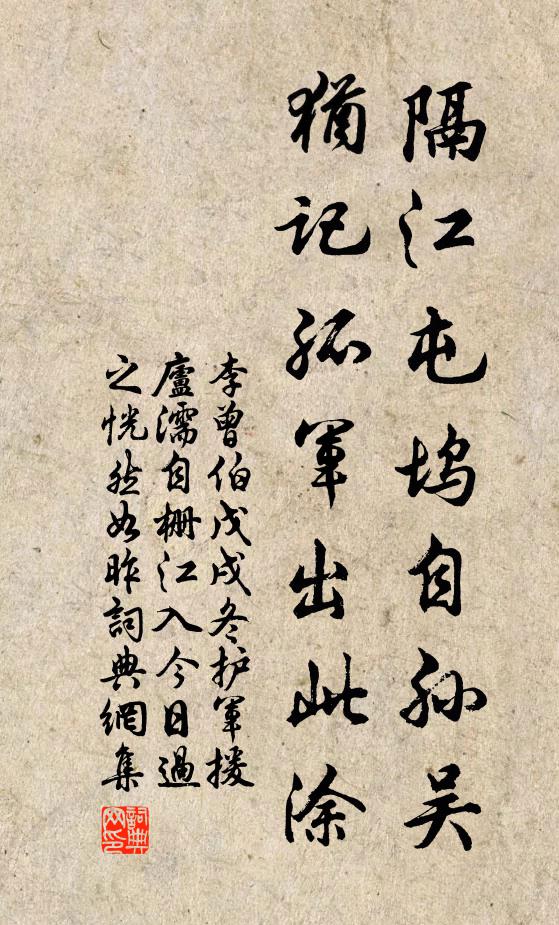 隔江屯坞自孙吴
猶记孤軍出此涂
李曾伯戊戌冬护軍援
廬濡自栅江入今日過
之恍然如昨詞典網集
詞典网印